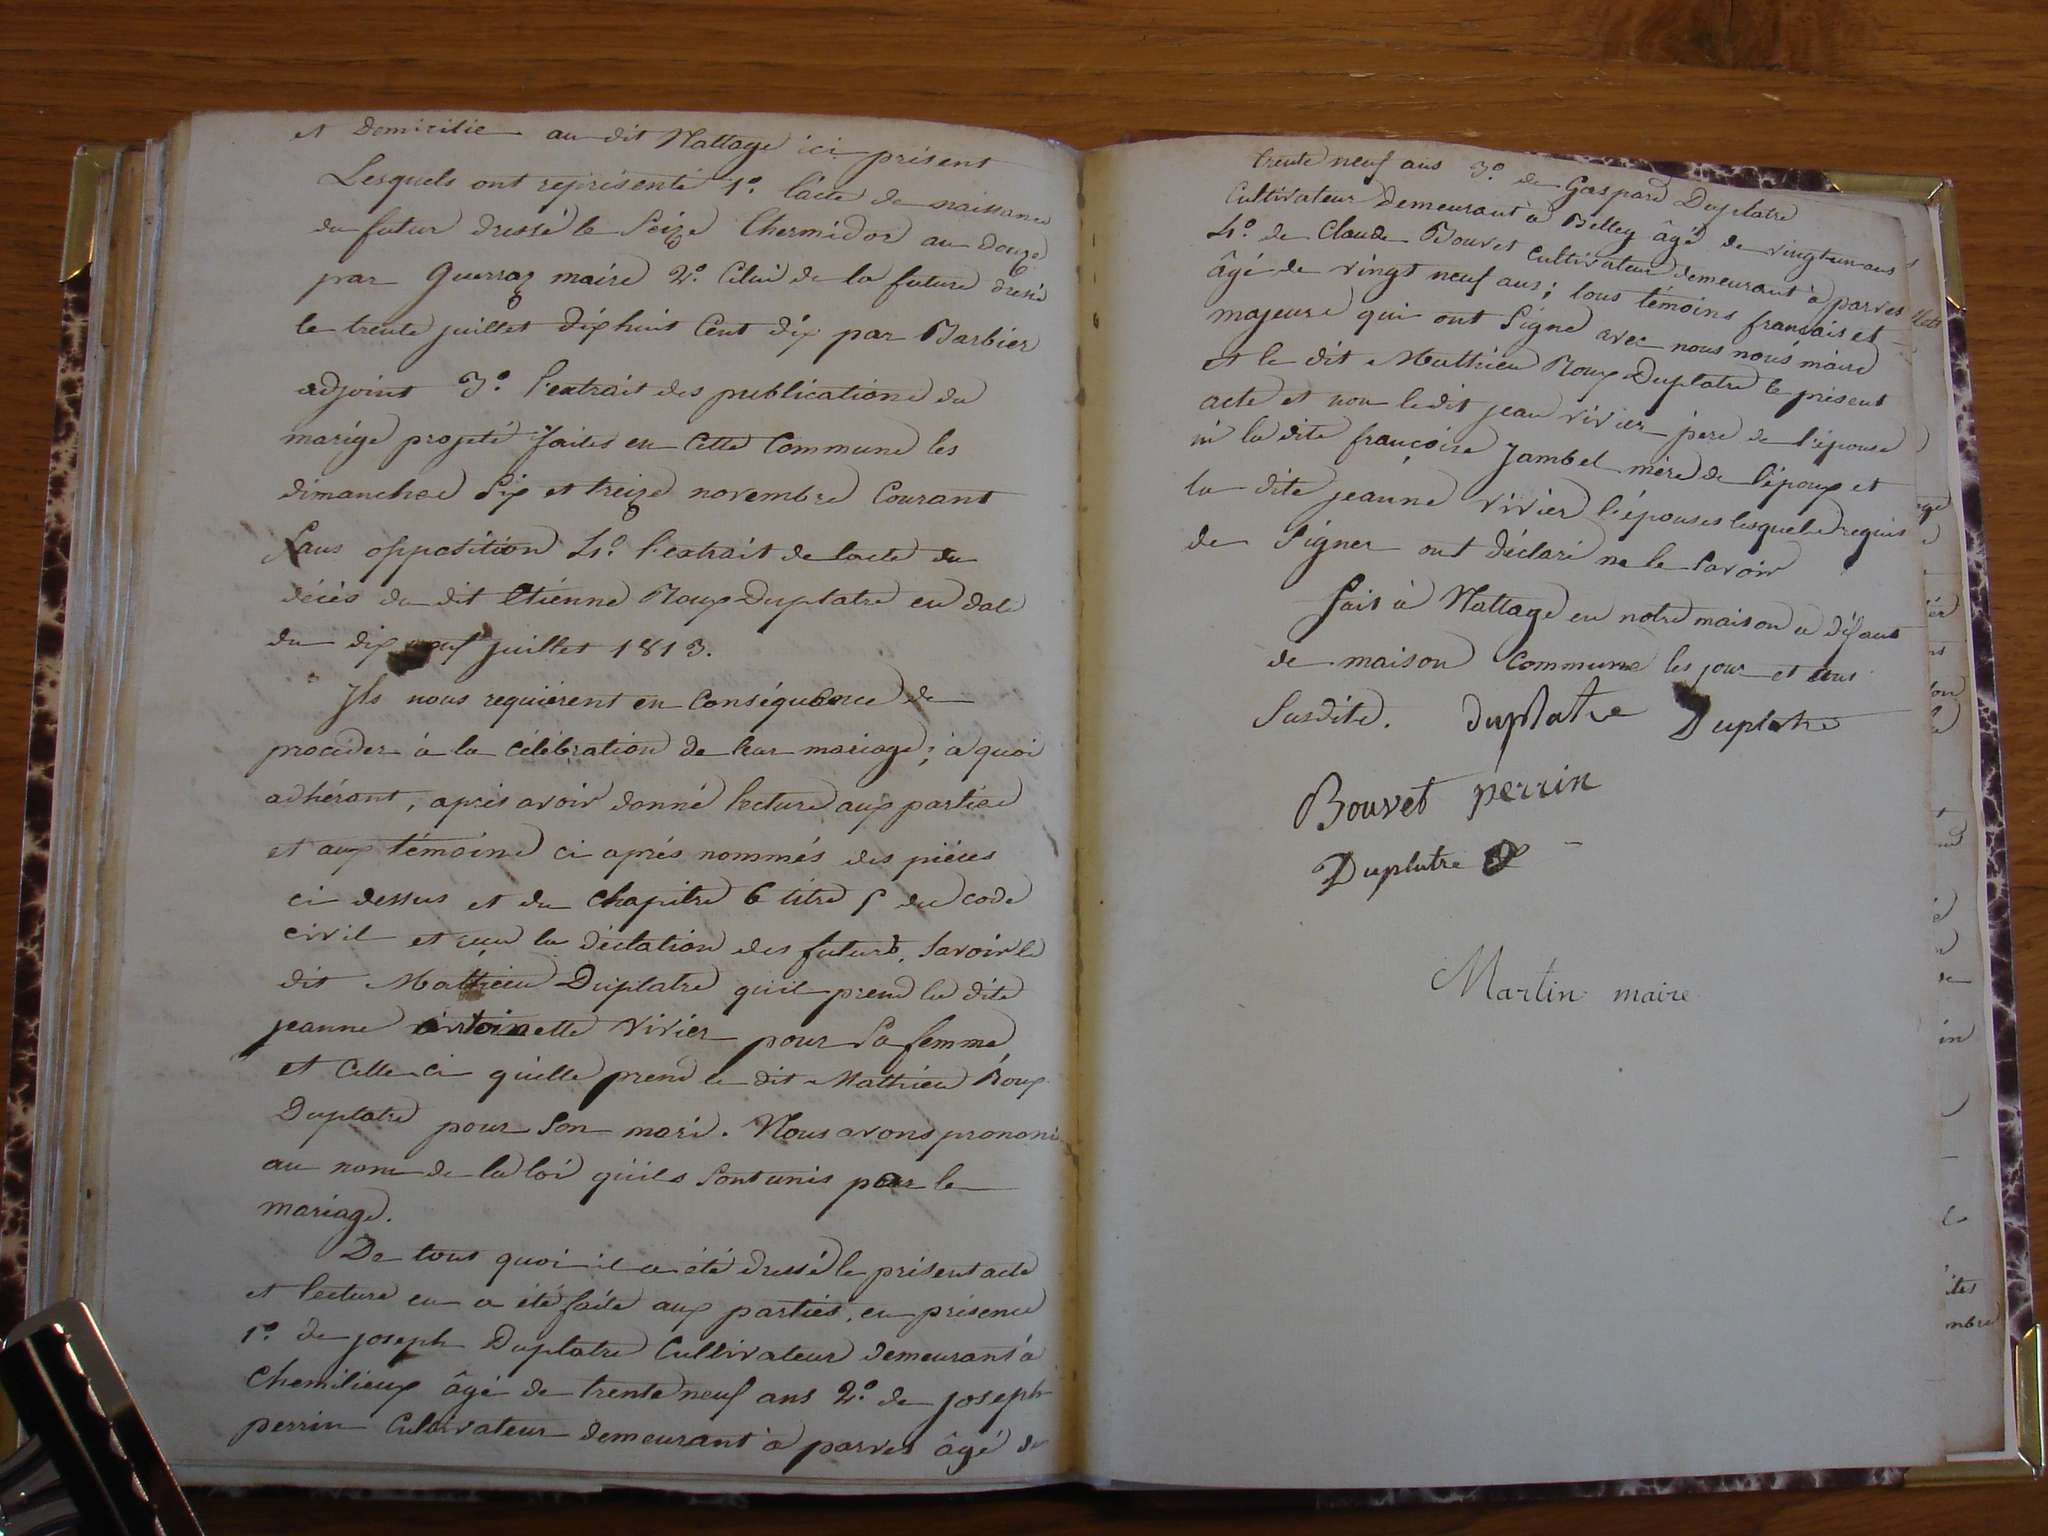 et domicilié au dit Nattage ici présent
Lesquels ont représenté 1º. l'acte de naissance
du futur dressé le Seize thermidor an douze
par Guerraz maire 2º. Celui de la future dressé
le trente juillet dix huit Cent dix par Barbier
adjoint 3º. l'extrait des publications du
marige projeté faites en Cette Commune les
dimanches Six et treize novembre Courant
Sans opposition 4º. l'extrait de l'acte de
décès du dit Etiénne Roux Duplatre en date
du dix neuf juillet 1813.
Ils nous requièrent en Conséquence de
procéder à la célébration de leur mariage; à quoi
adhérant, après avoir donné lecture aux parties
et aux témoins ci après nommés des pièces
ci dessus et du Chapitre 6 titre 5 du code
civil et reçu la déclation des futurs, Savoir le
dit Mathieu Duplatre qu'il prend la dite
jeanne antoinette Vivier pour Sa femme
et Celle-ci qu'elle prend le dit Mathieu Roux
Duplatre pour Son mari. Nous avons prononcé
au nom de la loi qu'ils Sont unis par le
mariage.
De tout quoi il a été dressé le présent acte
et lecture en a été faite aux parties, en présence
1º. de joseph Duplatre Cultivateur demeurant à
Chemilieux âgé de trente neuf ans 2º. de joseph
perrin Cultivateur demeurant à parves âgé de
trente neuf ans 3º. de Gaspard Duplatre
Cultivateur demeurant à Belley âgé de vingt un ans
4º. de Claude Bouvet Cultivateur demeurant à parves
âgé de vingt neuf ans; tous témoins français et
majeurs qui ont Signé avec nous maire
et le dit Mathieu Roux Duplatre le présent
acte et non le dit jean Vivier père de l'épouse
ni la dite françoise Jambet mère de l'époux et
la dite jeanne Vivier l'épouse lesquels requis
de Signer ont déclaré ne le Savoir
fait à Nattage en notre maison a défaut
de maison Commune les jour et ans
Susdits. duplatre Duplatre
Bouvet perrin
Duplatre
Martin maire